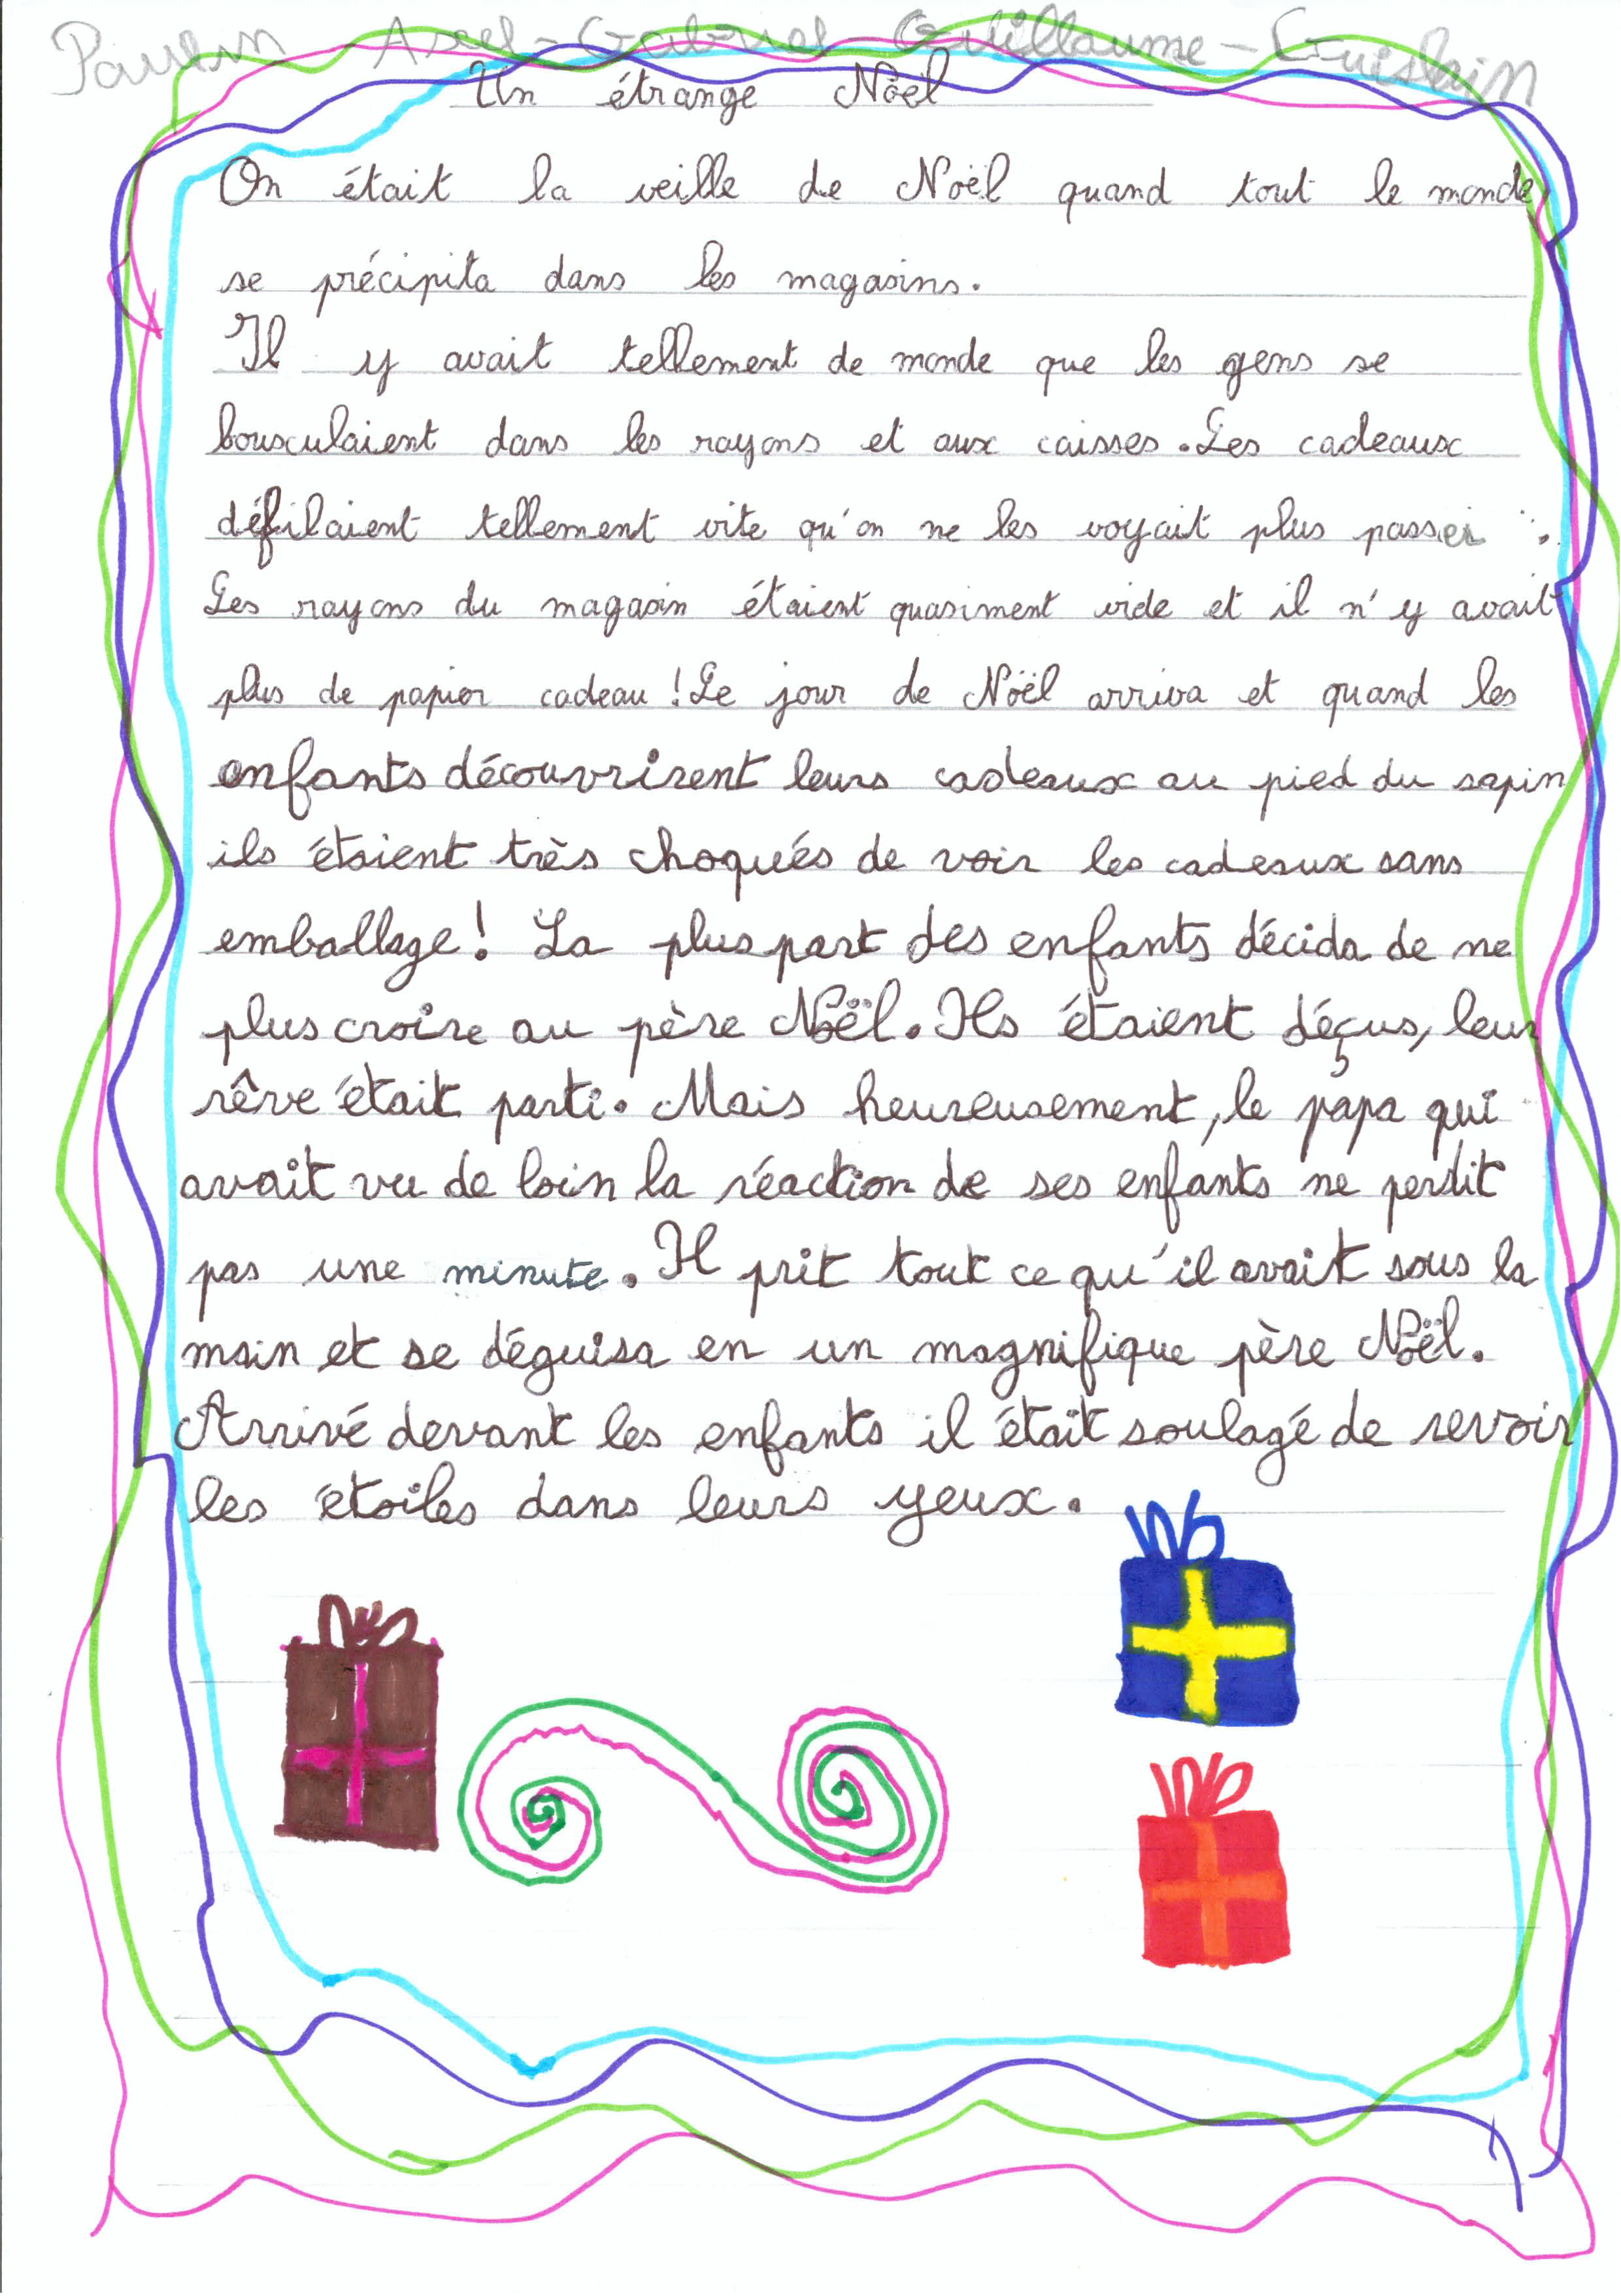 Paulin Axel-Gabriel-Guillaume-Guislain
Un étrange Noël
On était la veille de Noël quand tout le monde
se précipita dans les magasins.
Il y avait tellement de monde que les gens se
bousculaient dans les rayons et aux caisses. Les cadeaux
défilaient tellement vite qu'on ne les voyait plus passer.
Les rayons du magasin étaient quasiment vide et il n'y avait
plus de papier cadeau ! Le jour de Noël arriva et quand les
enfants découvrirent leurs cadeaux au pied du sapin
ils étaient très choqués de voir les cadeaux sans
emballage ! La plus part des enfants décida de ne
plus croire au père Noël. Ils étaient déçus, leur
rêve était parti. Mais heureusement, le papa qui
avait vu de loin la réaction de ses enfants ne perdit
pas une minute. Il prit tout ce qu'il avait sous la
main et se déguisa en un magnifique père Noël.
Arrivé devant les enfants il était soulagé de revoir
les étoiles dans leurs yeux.